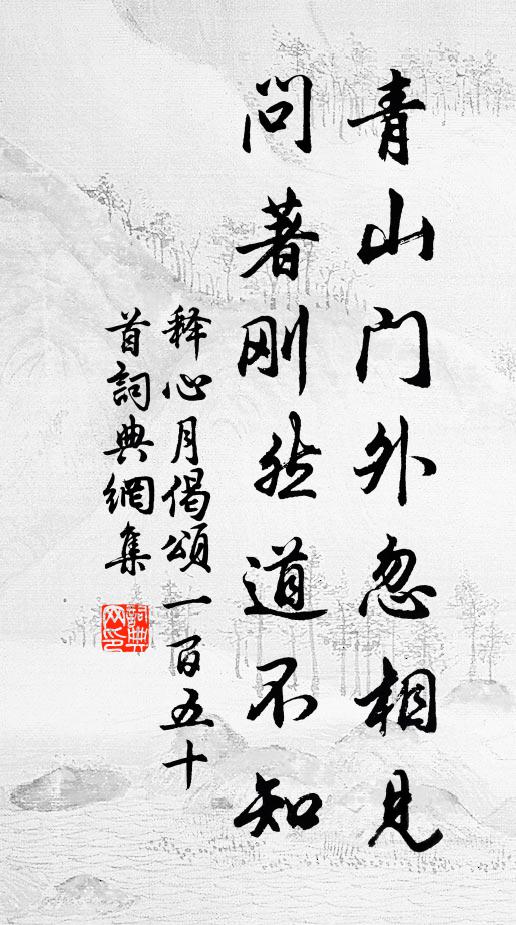 青山门外忽相见
问著刚然道不知
释心月偈颂一百五十
首詞典網集
詞典
网印